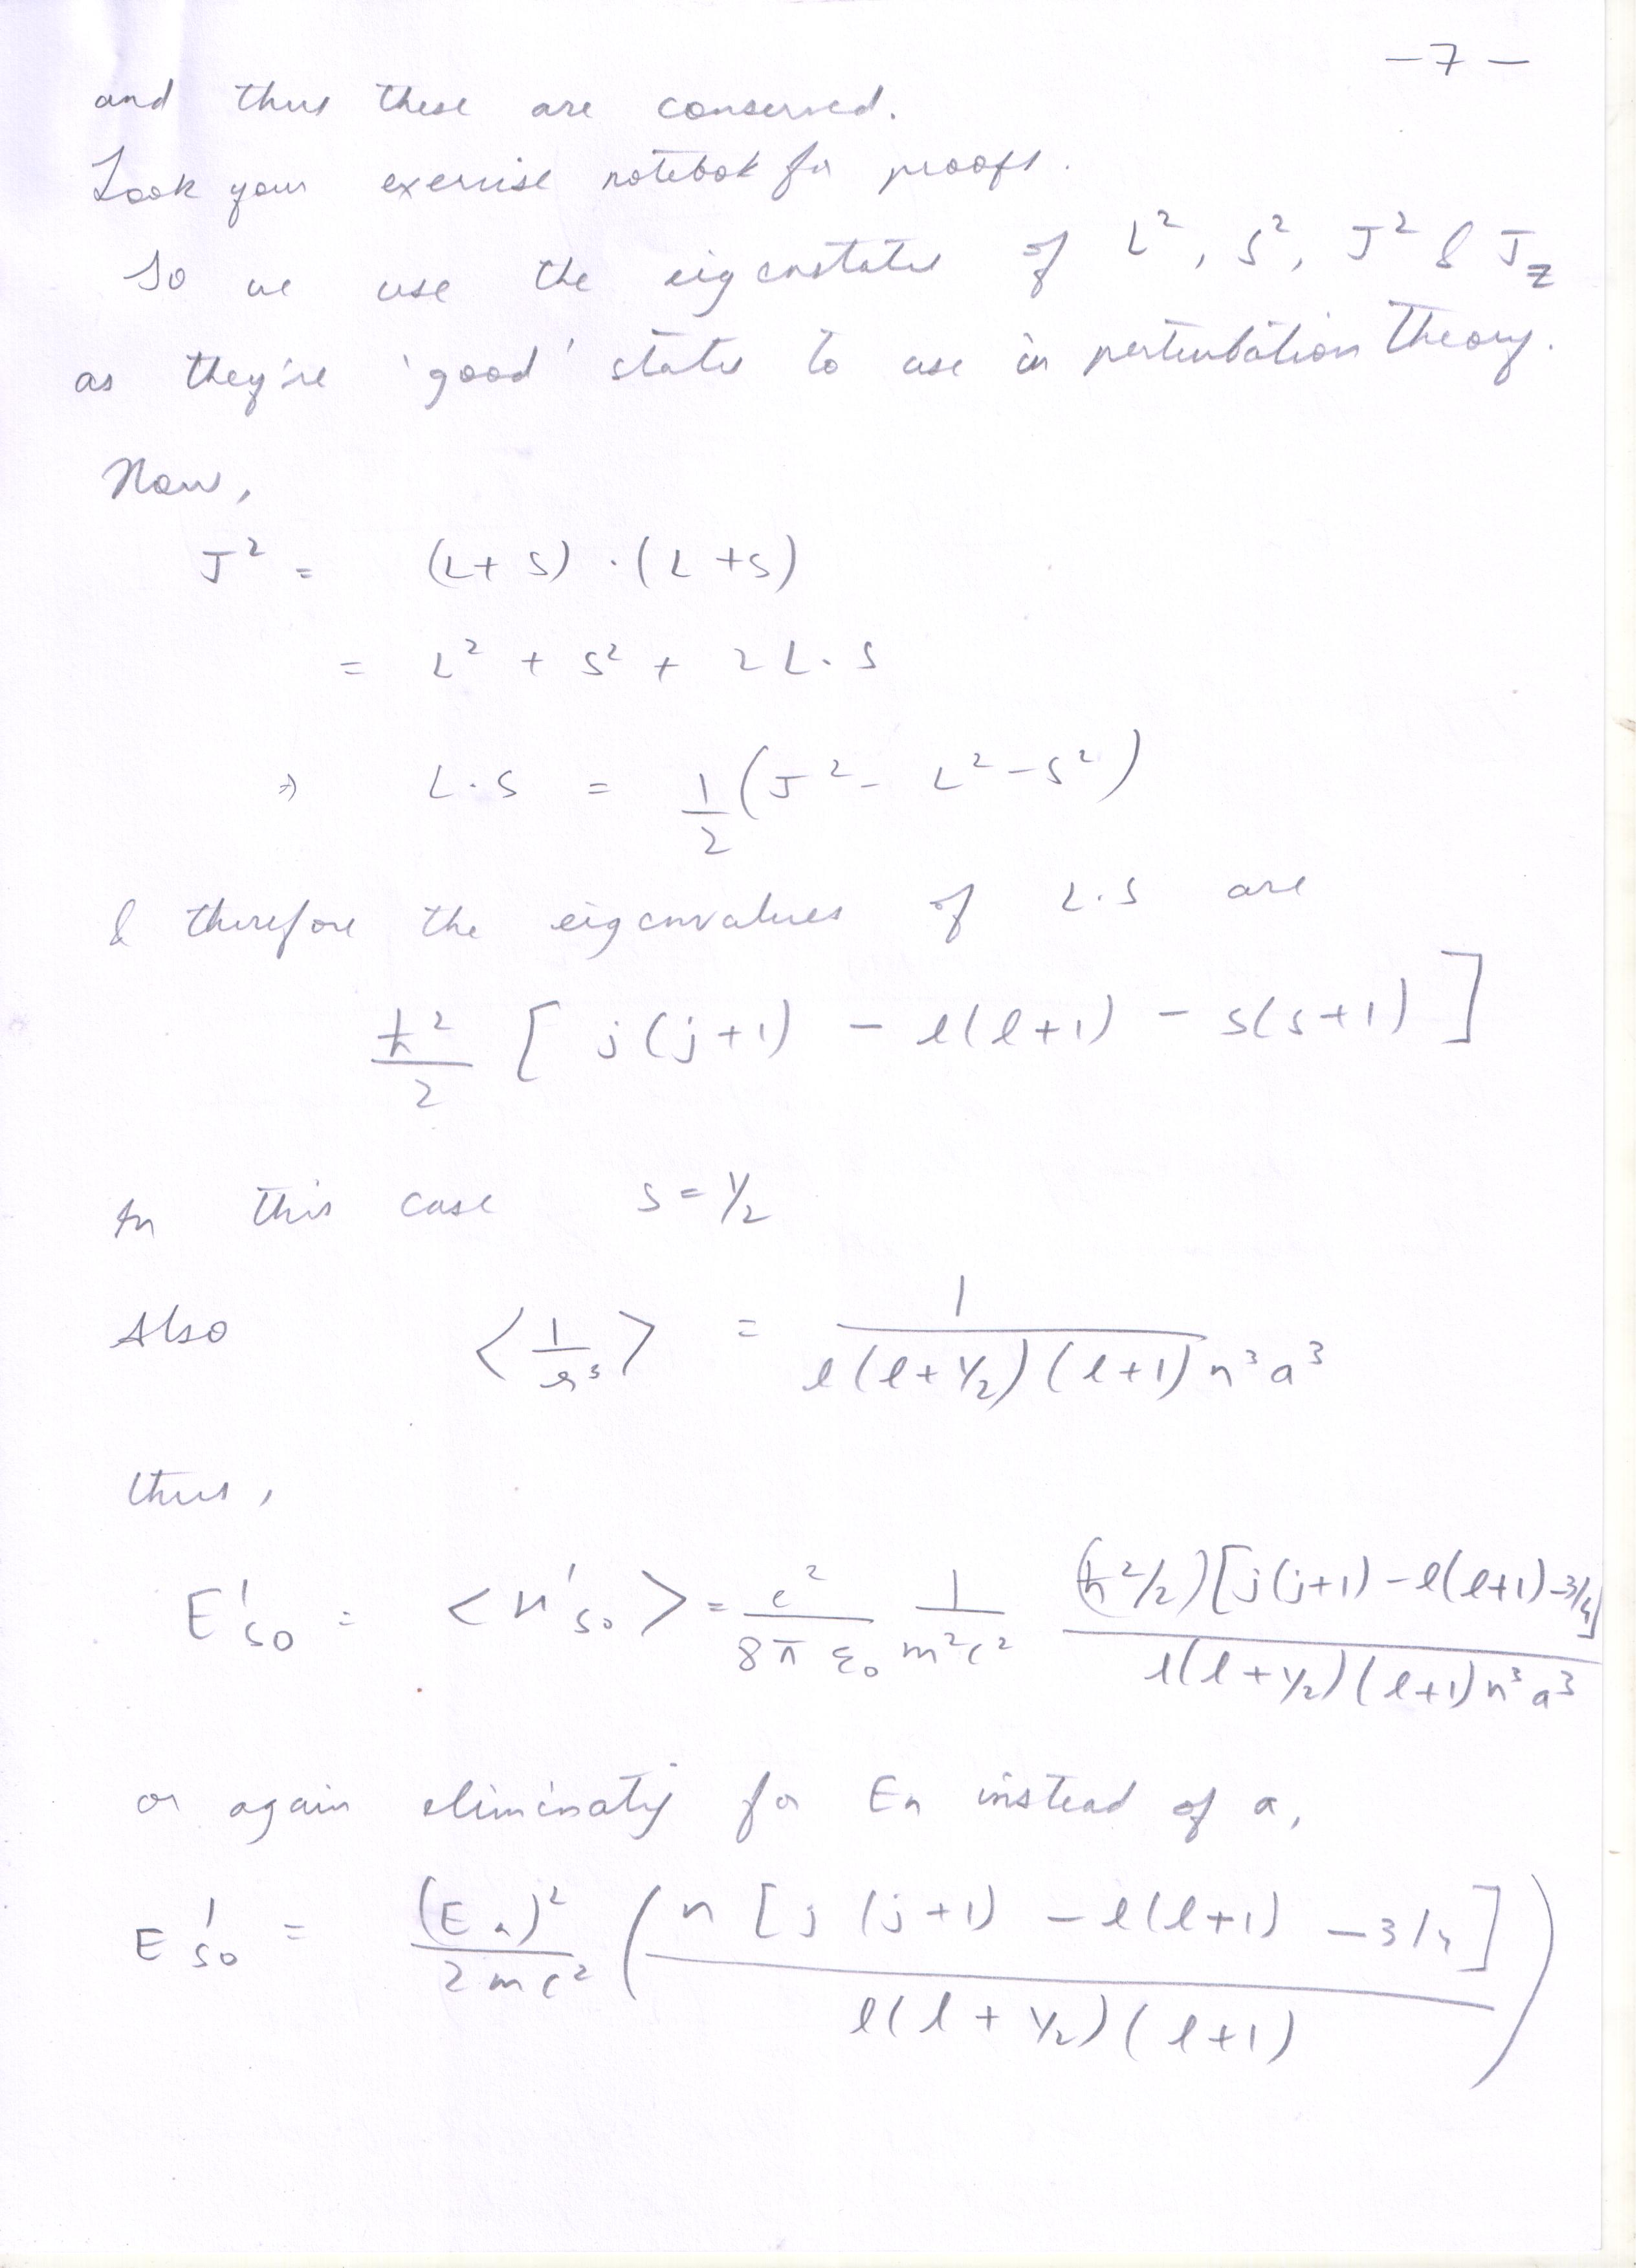 -7-
and thus these are conserved.
Look your exercise notebok for proofs.
So we use the eigenstates of L², S², J² & J_z
as they're 'good' states to use in perturbation Theory.
Now,
J² = (L+S)·(L+S)
= L² + S² + 2L·S
⇒ L·S = 1/2 (J² - L² - S²)
& therefore the eigenvalues of L.S are
ħ²/2 [j(j+1) - l(l+1) - s(s+1)]
In this case s = 1/2
Also <1/r³> = 1/(l(l+1/2)(l+1)n³a³)
thus,
E'so = <H'so> = e²/(8πε₀) 1/(m²c²) (ħ²/2)[j(j+1) - l(l+1) - 3/4]/(l(l+1/2)(l+1)n³a³)
or again eliminatig for En instead of a,
E'so = (En)²/(2mc²) (n[j(j+1) - l(l+1) - 3/4]/(l(l+1/2)(l+1)))